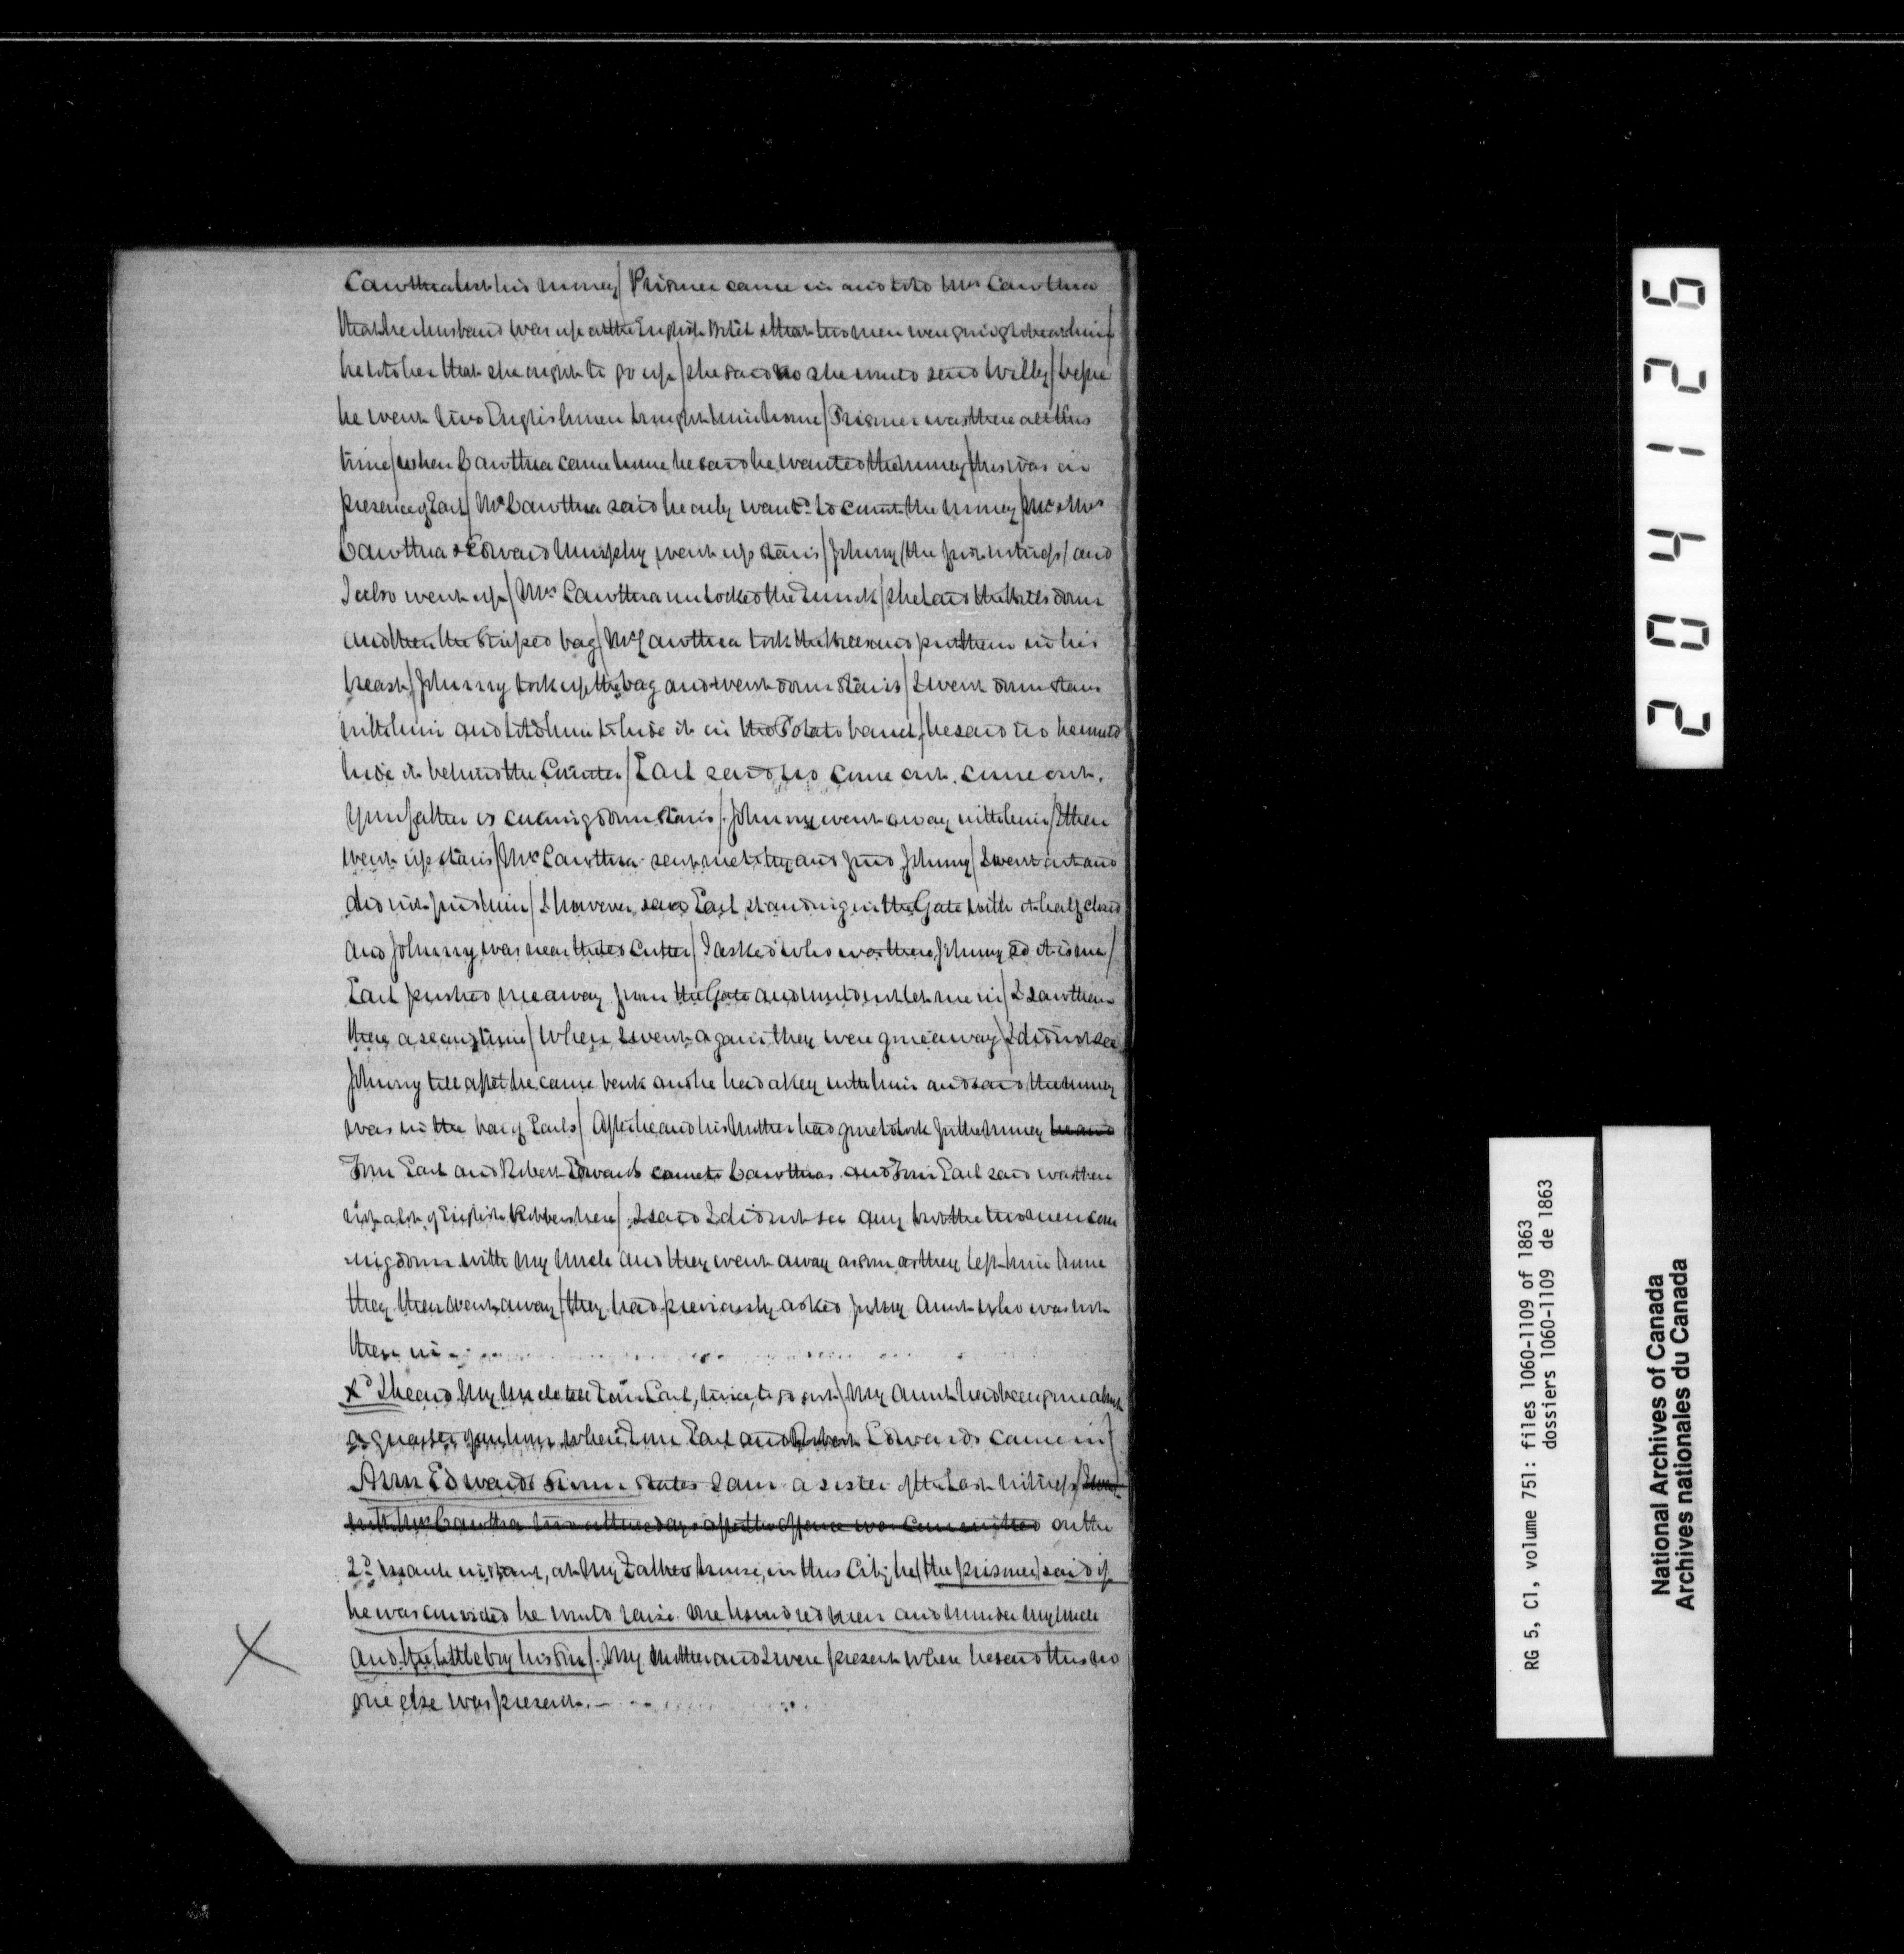 Cawthra lost his money / Prisoner came in and told Mrs Cawthra
that her husband was up at the English Hotel & that two men were going to beat him /
he told her that she ought to go up / she said no she would send Willy / before
he went two Englishmen brought him home / Prisoner was there all this
time / when Cawthra came home he said he wanted the money / this was in
presence of Earl / Mr Cawthra said he only want.d to count the money / Mr & Mrs
Cawthra & Edward Murphy went up stairs / Johnny / the first witness / and
I also went up / Mrs Cawthra unlocked the Trunk / she laid the bills down
and then the striped bag / Mr Cawthra took the bills and put them in his
breast / Johnny took up the bag and went down stairs / I went down stairs
with him and told him to hide it in the Potato barrel / he said no he would
hide it behind the Counter / Earl said no come out. come out.
Your father is coming down stairs / Johnny went away with him / I then
went up stairs / Mrs Cawthra sent me to try and find Johnny / I went out and
did not find him / I however saw Earl standing in the Gate with it half closed
and Johnny was near the Cutter / I asked who was there, Johnny sd it is me /
Earl pushed me away from the Gate and would not let me in / I saw them
there a second time / When I went again they were gone away / I did not see
Johnny till after he came back and he had a key with him and said the money
was in the bar of Earls / After he and his Mother had gone to look for the money
Tom Earl and Robert Edwards came to Cawthras and Tom Earl said was there
not a lot of English Robbers here / I said I did not see any but the two men com
-ing down with my Uncle and they went away as soon as they left him home
they then went away / they had previously asked for my Aunt who was not
then in -
Xd I heard my Uncle tell Tom Earl, twice, to go out / My Aunt had been gone about
a quarter of an hour when Tom Earl and Robert Edwards came in /
Ann Edwards Sworn States I am a sister of the last witness /
on the
2d March instant, at my Father's house, in this City, he / the prisoner / said if
he was convicted he would raise one hundred men and murder my Uncle
and the little boy his son /. My Mother and I were present when he said this no
one else was present. -
X
204126
RG 5, C1, volume 751: files 1060-1109 of 1863
dossiers 1060-1109 de 1863
National Archives of Canada
Archives nationales du Canada